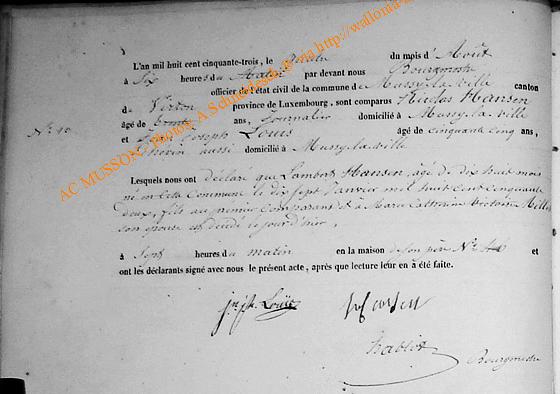 L'an mil huit cent cinquante-trois, le du mois d'Août
à Six heures du Matin par devant nous Bourgmestre
officier de l'état civil de la commune de Mussy-la-Ville canton
de Virton province de Luxembourg, sont comparus Nicolas Hansen
N° 10.
âgé de trente ans, Journalier domicilié à Mussy-la-Ville
et Joseph Louis âgé de cinquante cinq ans,
aussi domicilié à Mussy-la-Ville
Lesquels nous ont déclaré que Lambert Hansen, âgé de dix huit mois
né en cette Commune le dix sept Janvier mil huit Cent Cinquante
deux, fils au premier Comparant et à Marie Catherine Victoire
son épouse est décédé le jour d'hier,
à Sept heures du matin en la maison de son père N° et
ont les déclarants signé avec nous le présent acte, après que lecture leur en a été faite.
Louis
Bourgmestre
AC MUSSON - Photos: A Schneidesch, @ via http://wallonia